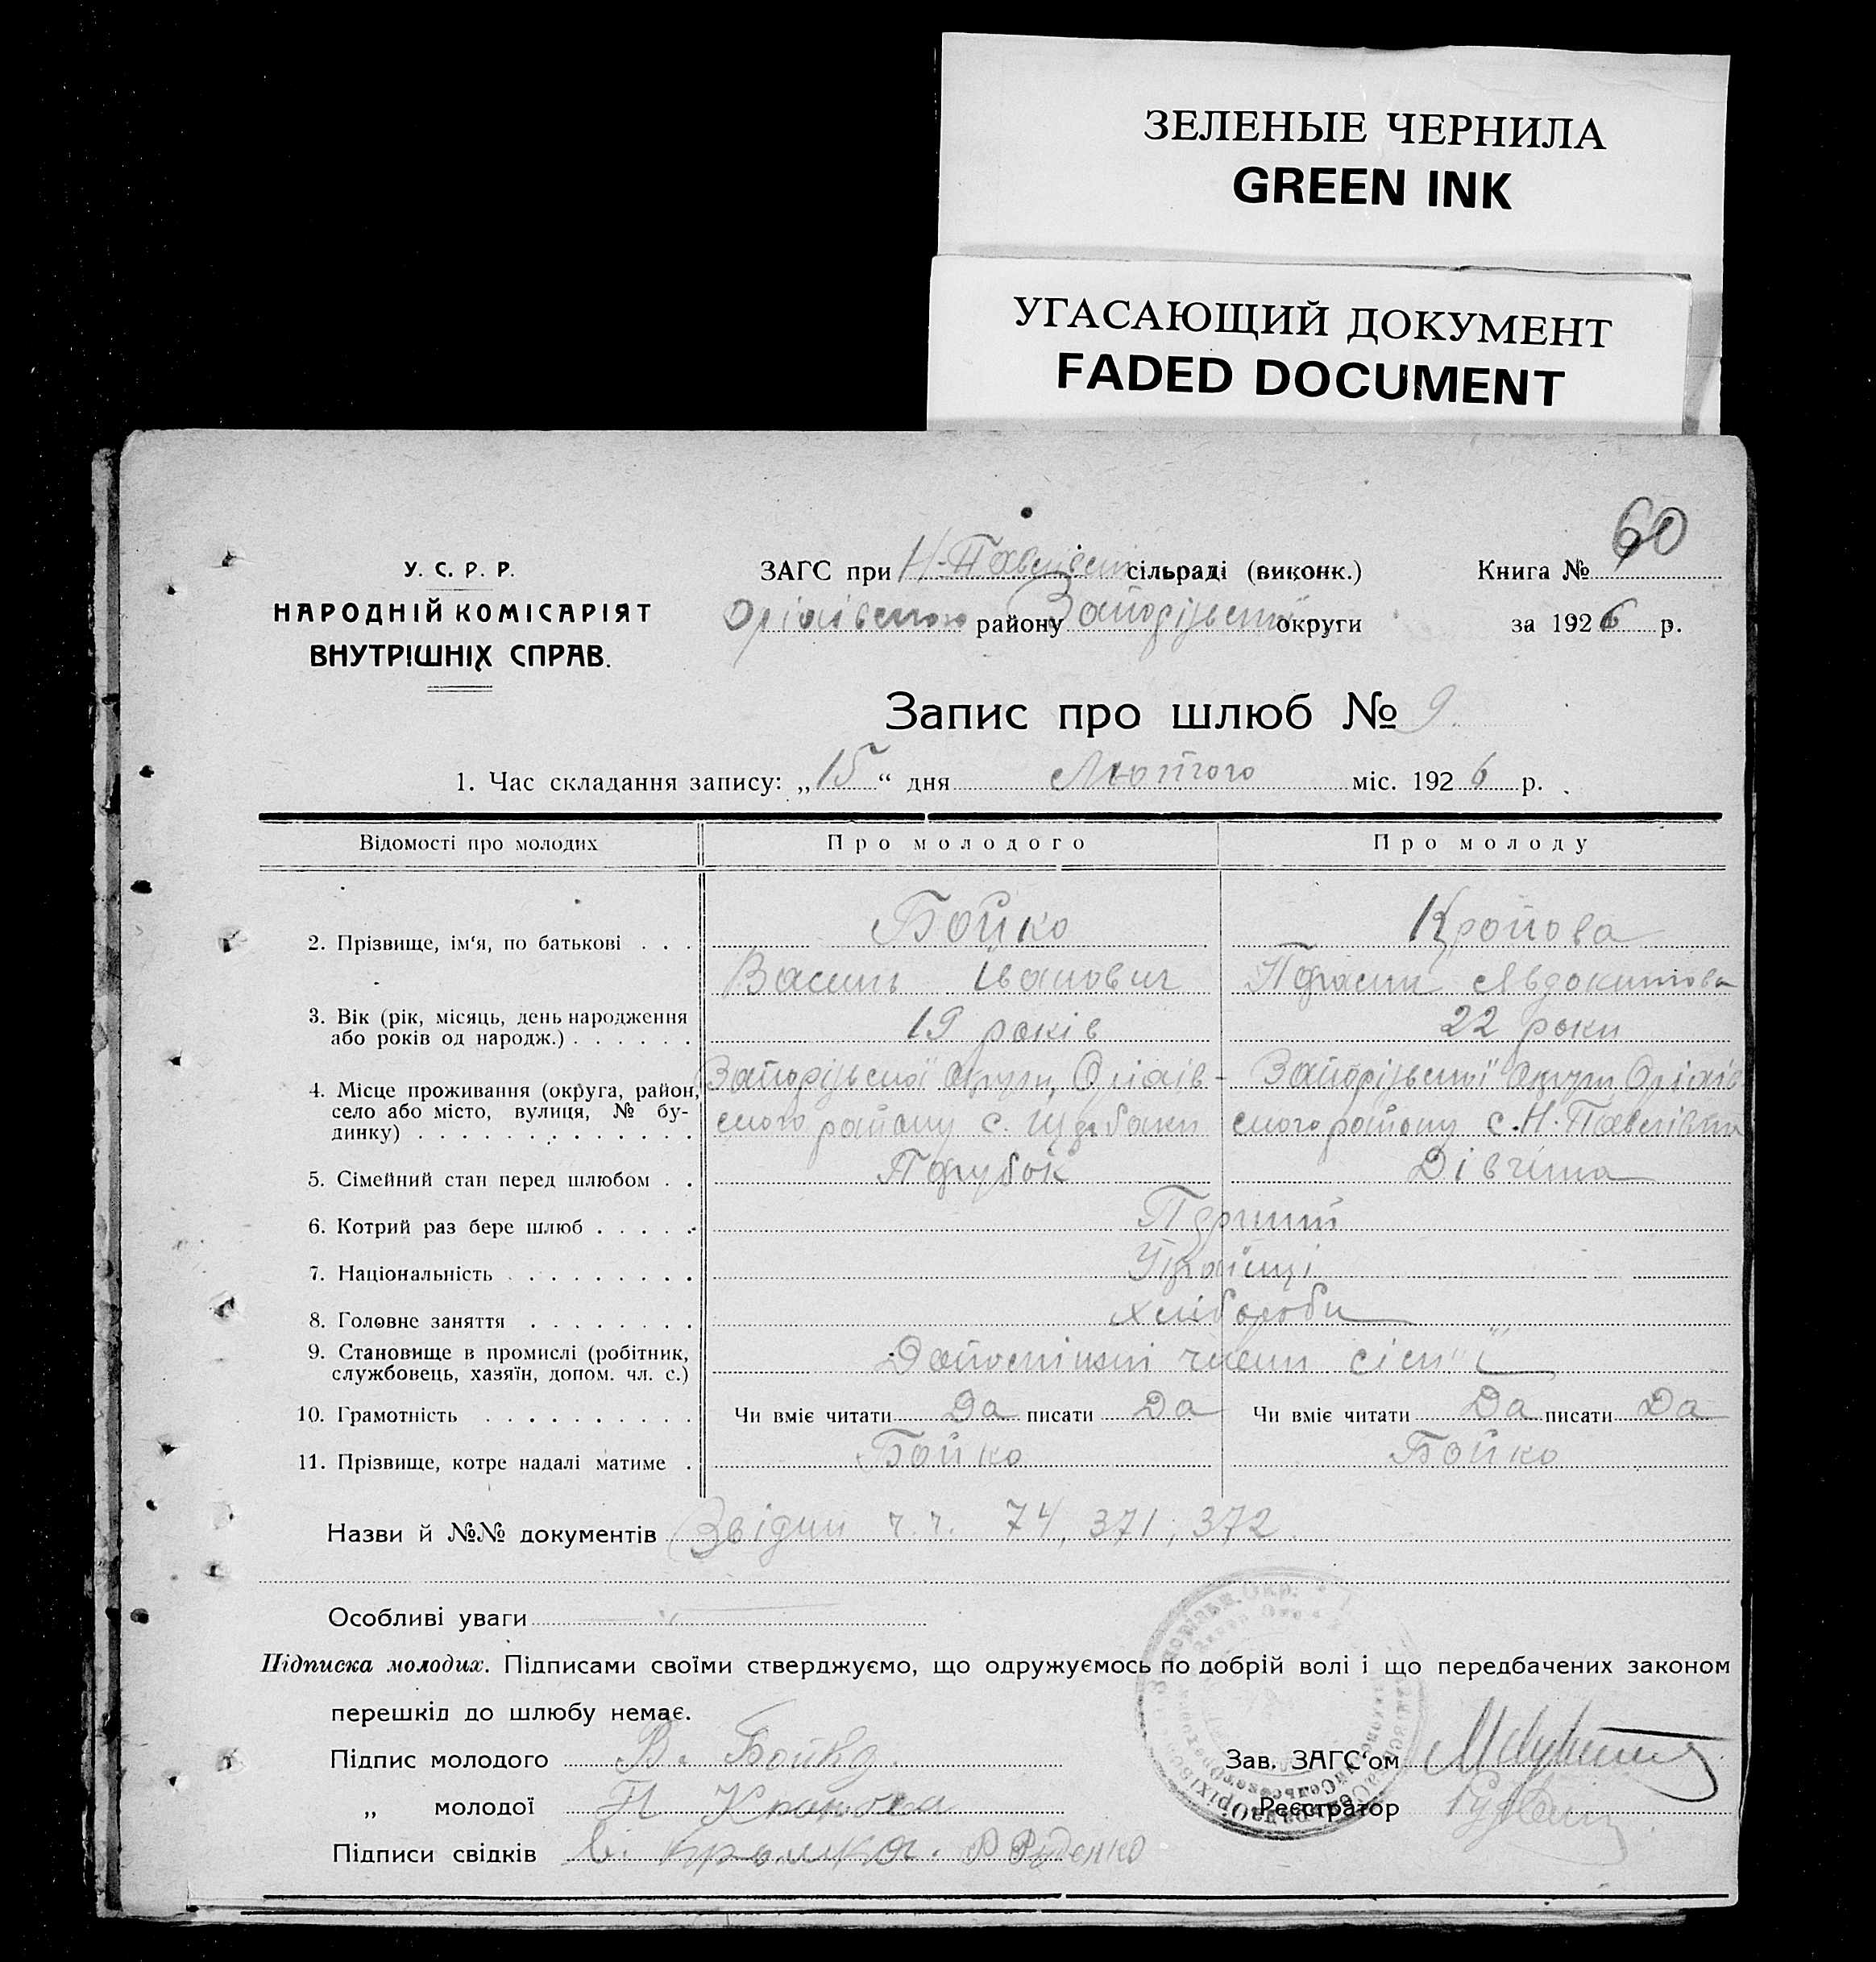 ЗЕЛЕНЫЕ ЧЕРНИЛА
GREEN INK
УГАСАЮЩИЙ ДОКУМЕНТ
FADED DOCUMENT
60
У. С. Р. Р.
НАРОДНІЙ КОМІСАРІЯТ
ВНУТРІШНІХ СПРАВ.
ЗАГС при Н-Павлівськ сільраді (виконк.) Книга №
Оріхівського району Запорізької округи за 1926 р.
Запис про шлюб № 9.
1. Час складання запису: „15“ дня Лютого міс. 1926 р.
Відомості про молодих Про молодого Про молоду
2. Прізвище, ім'я, по батькові . . . Бойко
Василь Іванович Параски Явдокимова
3. Вік (рік, місяць, день народження або років од народж.) . . . . . . 19 років 22 роки
4. Місце проживання (округа, район, село або місто, вулиця, № будинку) . . . . . . . . . . . . . Запорізької Округи, Оріхів-
ського району с. Щербаки
Запорізької Округи Оріхів
ського району с. Н. Павлівки
5. Сімейний стан перед шлюбом . . Парубок Дівчина
6. Котрий раз бере шлюб . . . . . Перший
7. Національність . . . . . . . . . Українці
8. Головне заняття . . . . . . . . Хлібороби
9. Становище в промислі (робітник, службовець, хазяїн, допом. чл. с.) Допомічні члени сім'ї
10. Грамотність . . . . . . . . . . Чи вміє читати Да писати Да Чи вміє читати Да писати Да
11. Прізвище, котре надалі матиме . Бойко Бойко
Назви й №№ документів Звідки ч.ч. 74, 371, 372
Особливі уваги
Підписка молодих. Підписами своїми стверджуємо, що одружуємось по добрій волі і що передбачених законом
перешкід до шлюбу немає.
Підпис молодого В. Бойко. Зав. ЗАГС'ом
„ молодої П Реєстратор
Підписи свідків Руденко